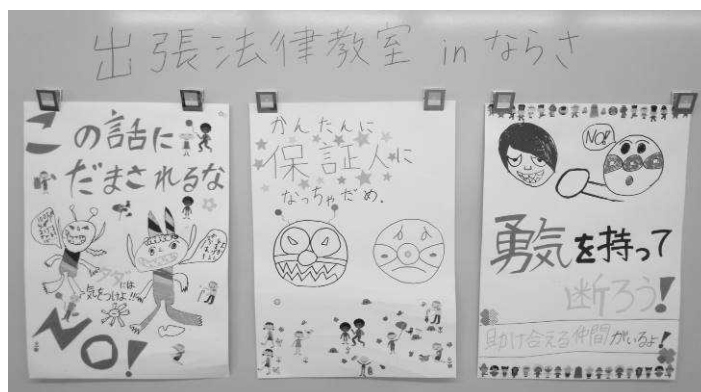 出張法律教室 in ならさ
この話に
だまされるな
タダには
気をつけよ!!
NO!
かんたんに
保証人に
なっちゃだめ.
NO!!
勇気を持って
断ろう!
助け合える仲間がいるよ!